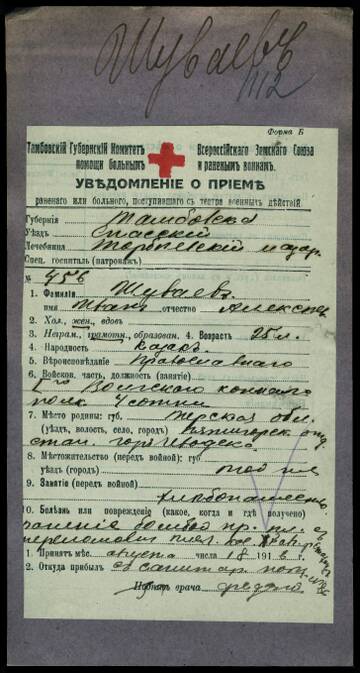 Шуваевъ
1112
Форма Б
Тамбовскій Губернскій Комитетъ Всероссійскаго Земскаго Союза
помощи больнымъ и раненымъ воинамъ.
УВѢДОМЛЕНІЕ О ПРІЕМѢ
раненаго или больного, поступившаго съ театра военныхъ дѣйствій.
Губернія Тамбовская
Уѣздъ Спасскій
Лечебница
Спец. госпиталь (патронажъ)
№ 456
1. Фамилія Шуваевъ
имя Иванъ отчество Алексѣев
2. Хол., жен., вдовъ
3. Неграм., грамотн., образован. 4. Возрастъ 25 л.
4. Народность казакъ
5. Вѣроисповѣданіе Православнаго
6. Войсков. часть, должность (занятіе)
1го Волгскаго коннаго
полк 4 сотни
7. Мѣсто родины: губ. Терская обл.
(уѣздъ, волость, село, городъ) Пятигорск. отд.
стан. Горячеводска
8. Мѣстожительство (передъ войной): губ.
уѣздъ (городъ) тоо же
9. Занятіе (передъ войной)
хлѣбопашество
10. Болѣзнь или поврежденіе (какое, когда и гдѣ получено)
раненіе бомбой пр. пл. съ
переломомъ плеч. кос.
1. Принятъ мѣс. августа числа 18 191 6 г.
2. Откуда прибылъ съ санитар. поѣзд
Подпись врача